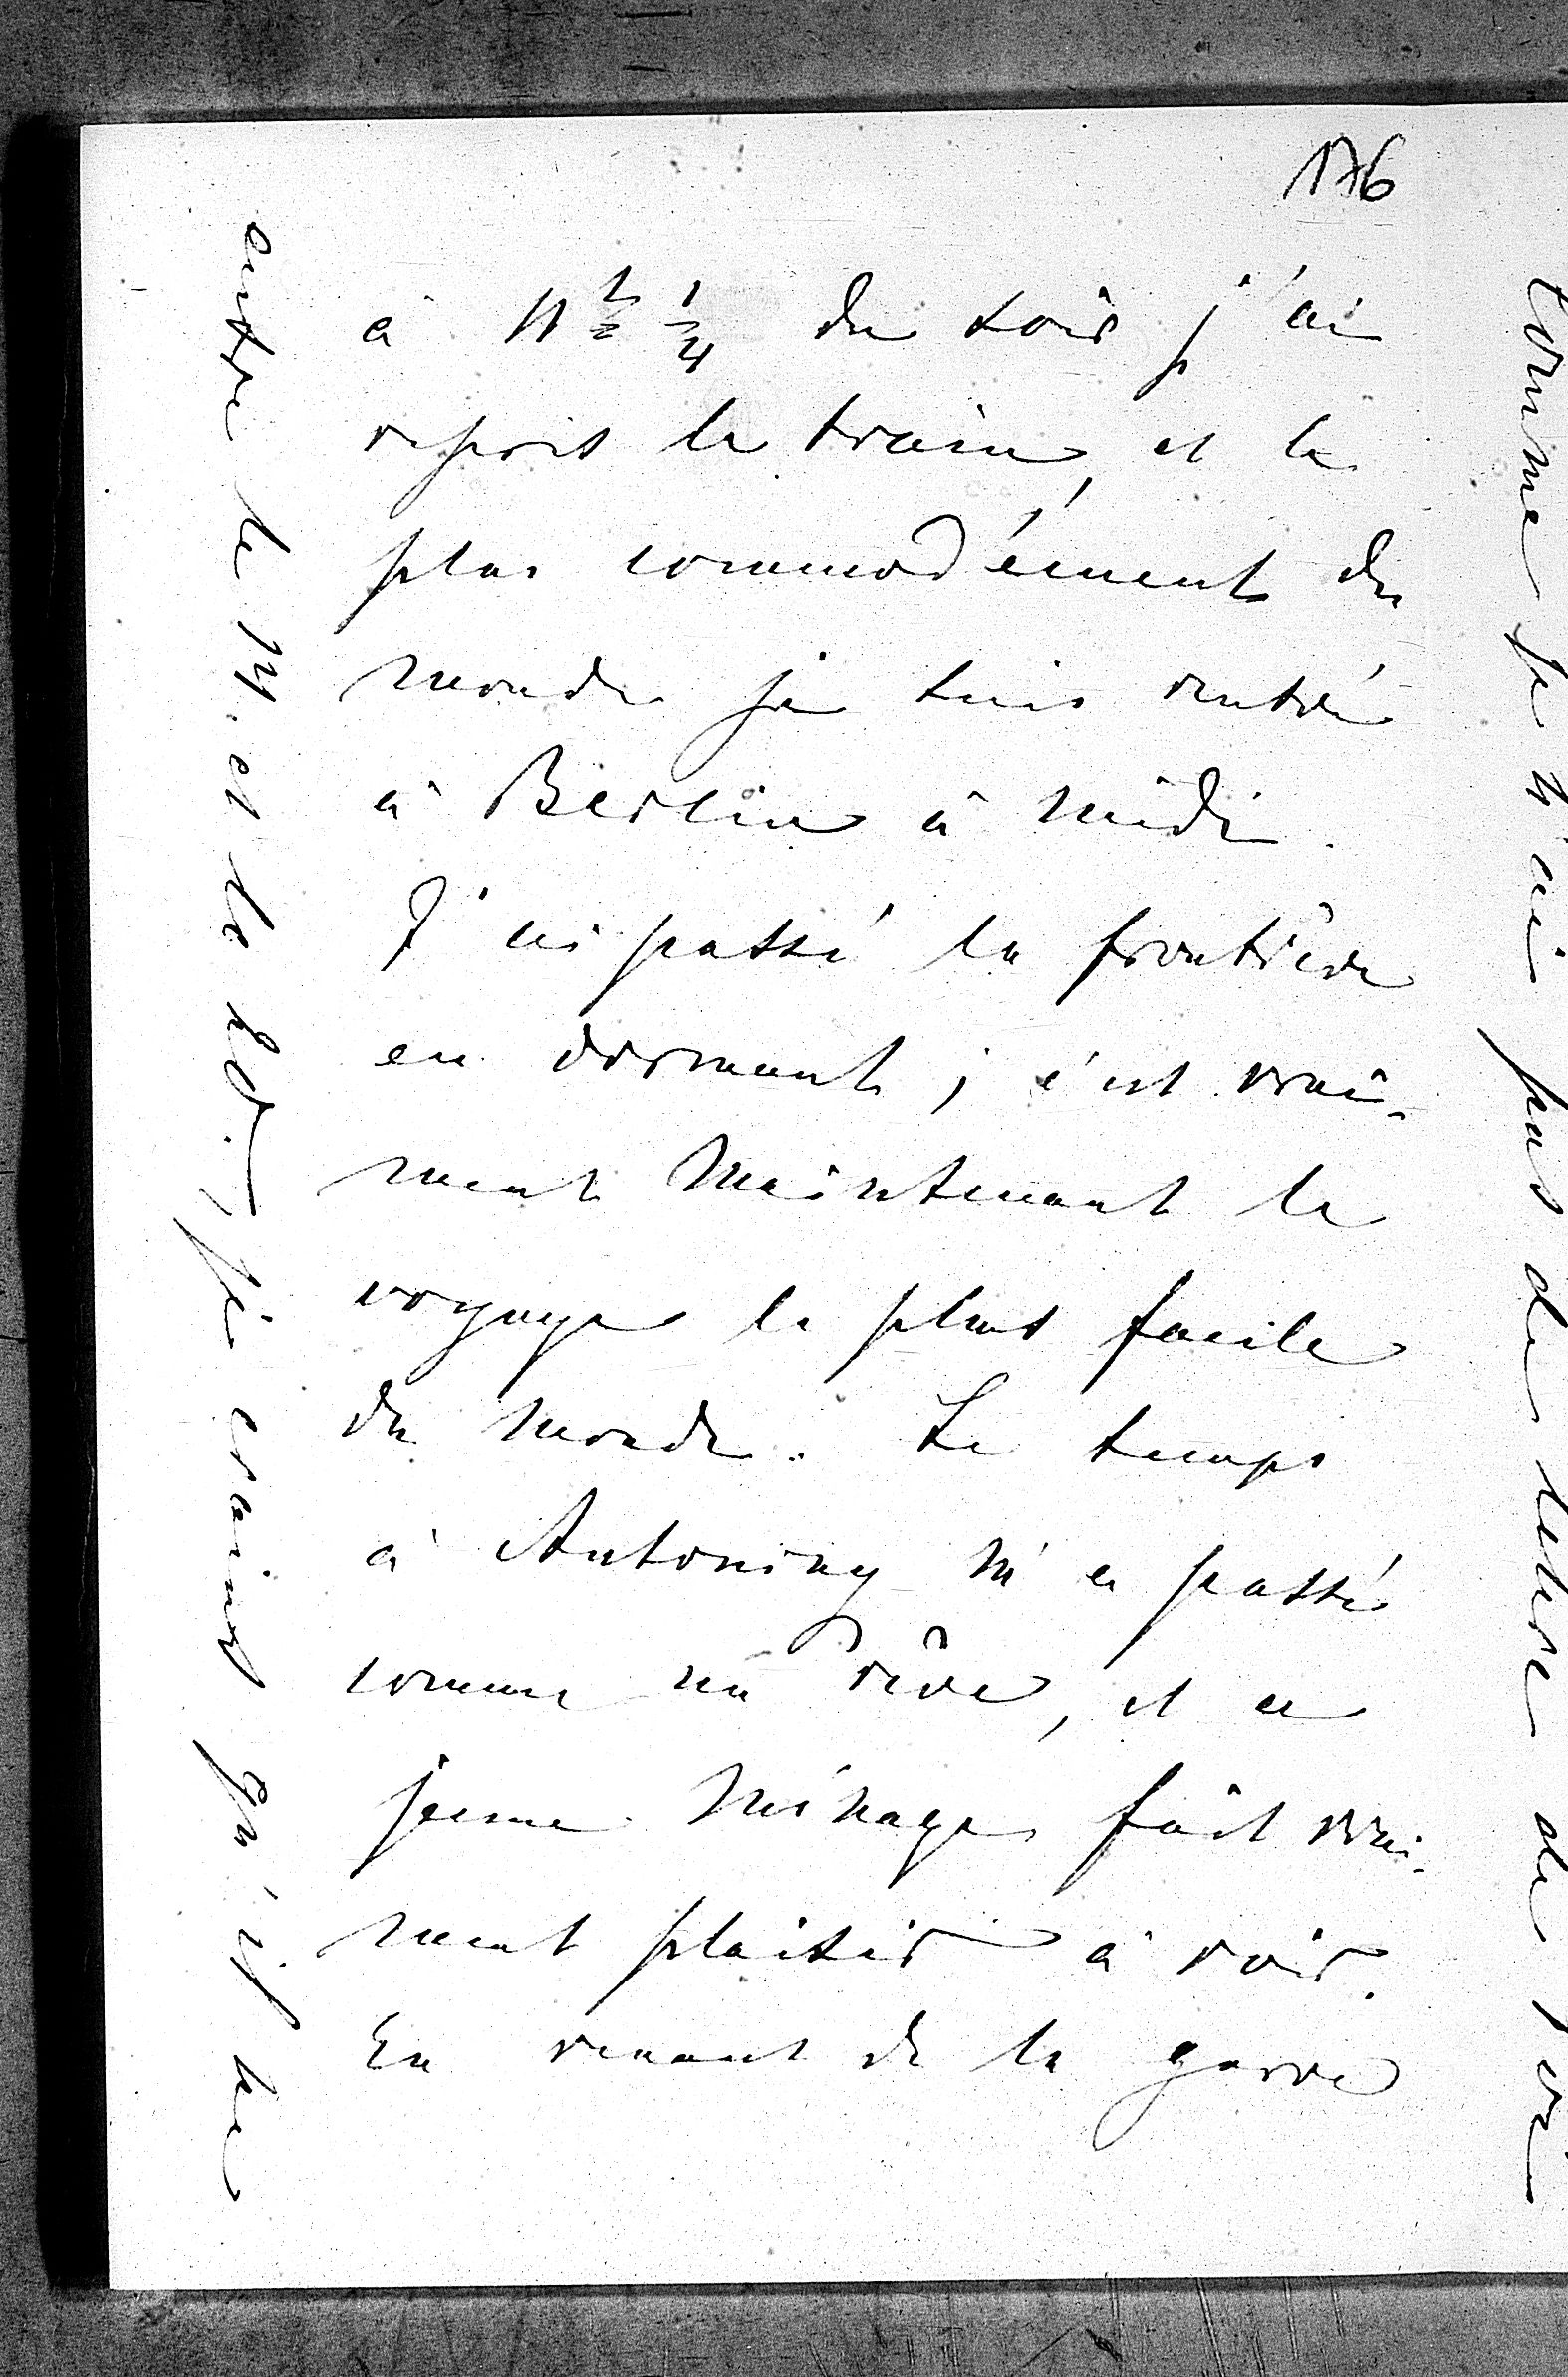 176
à 11 h/2 1/4 du soir j'ai
repris le train, et le
plus commodément du
monde je suis rentré
à Berlin à midi.
J'ai passé la frontière
en dormant; c'est vrai-
ment maintenant le
voyage le plus facile
du monde. Le temps
à Antoniny m'a passé
comme un rêve, et ce
jeune ménage fait vrai-
ment plaisir à voir.
En venant de la garre
entre le 14. et le 20. je crains qu'il ne
comme je n'ai pas de lettre de toi